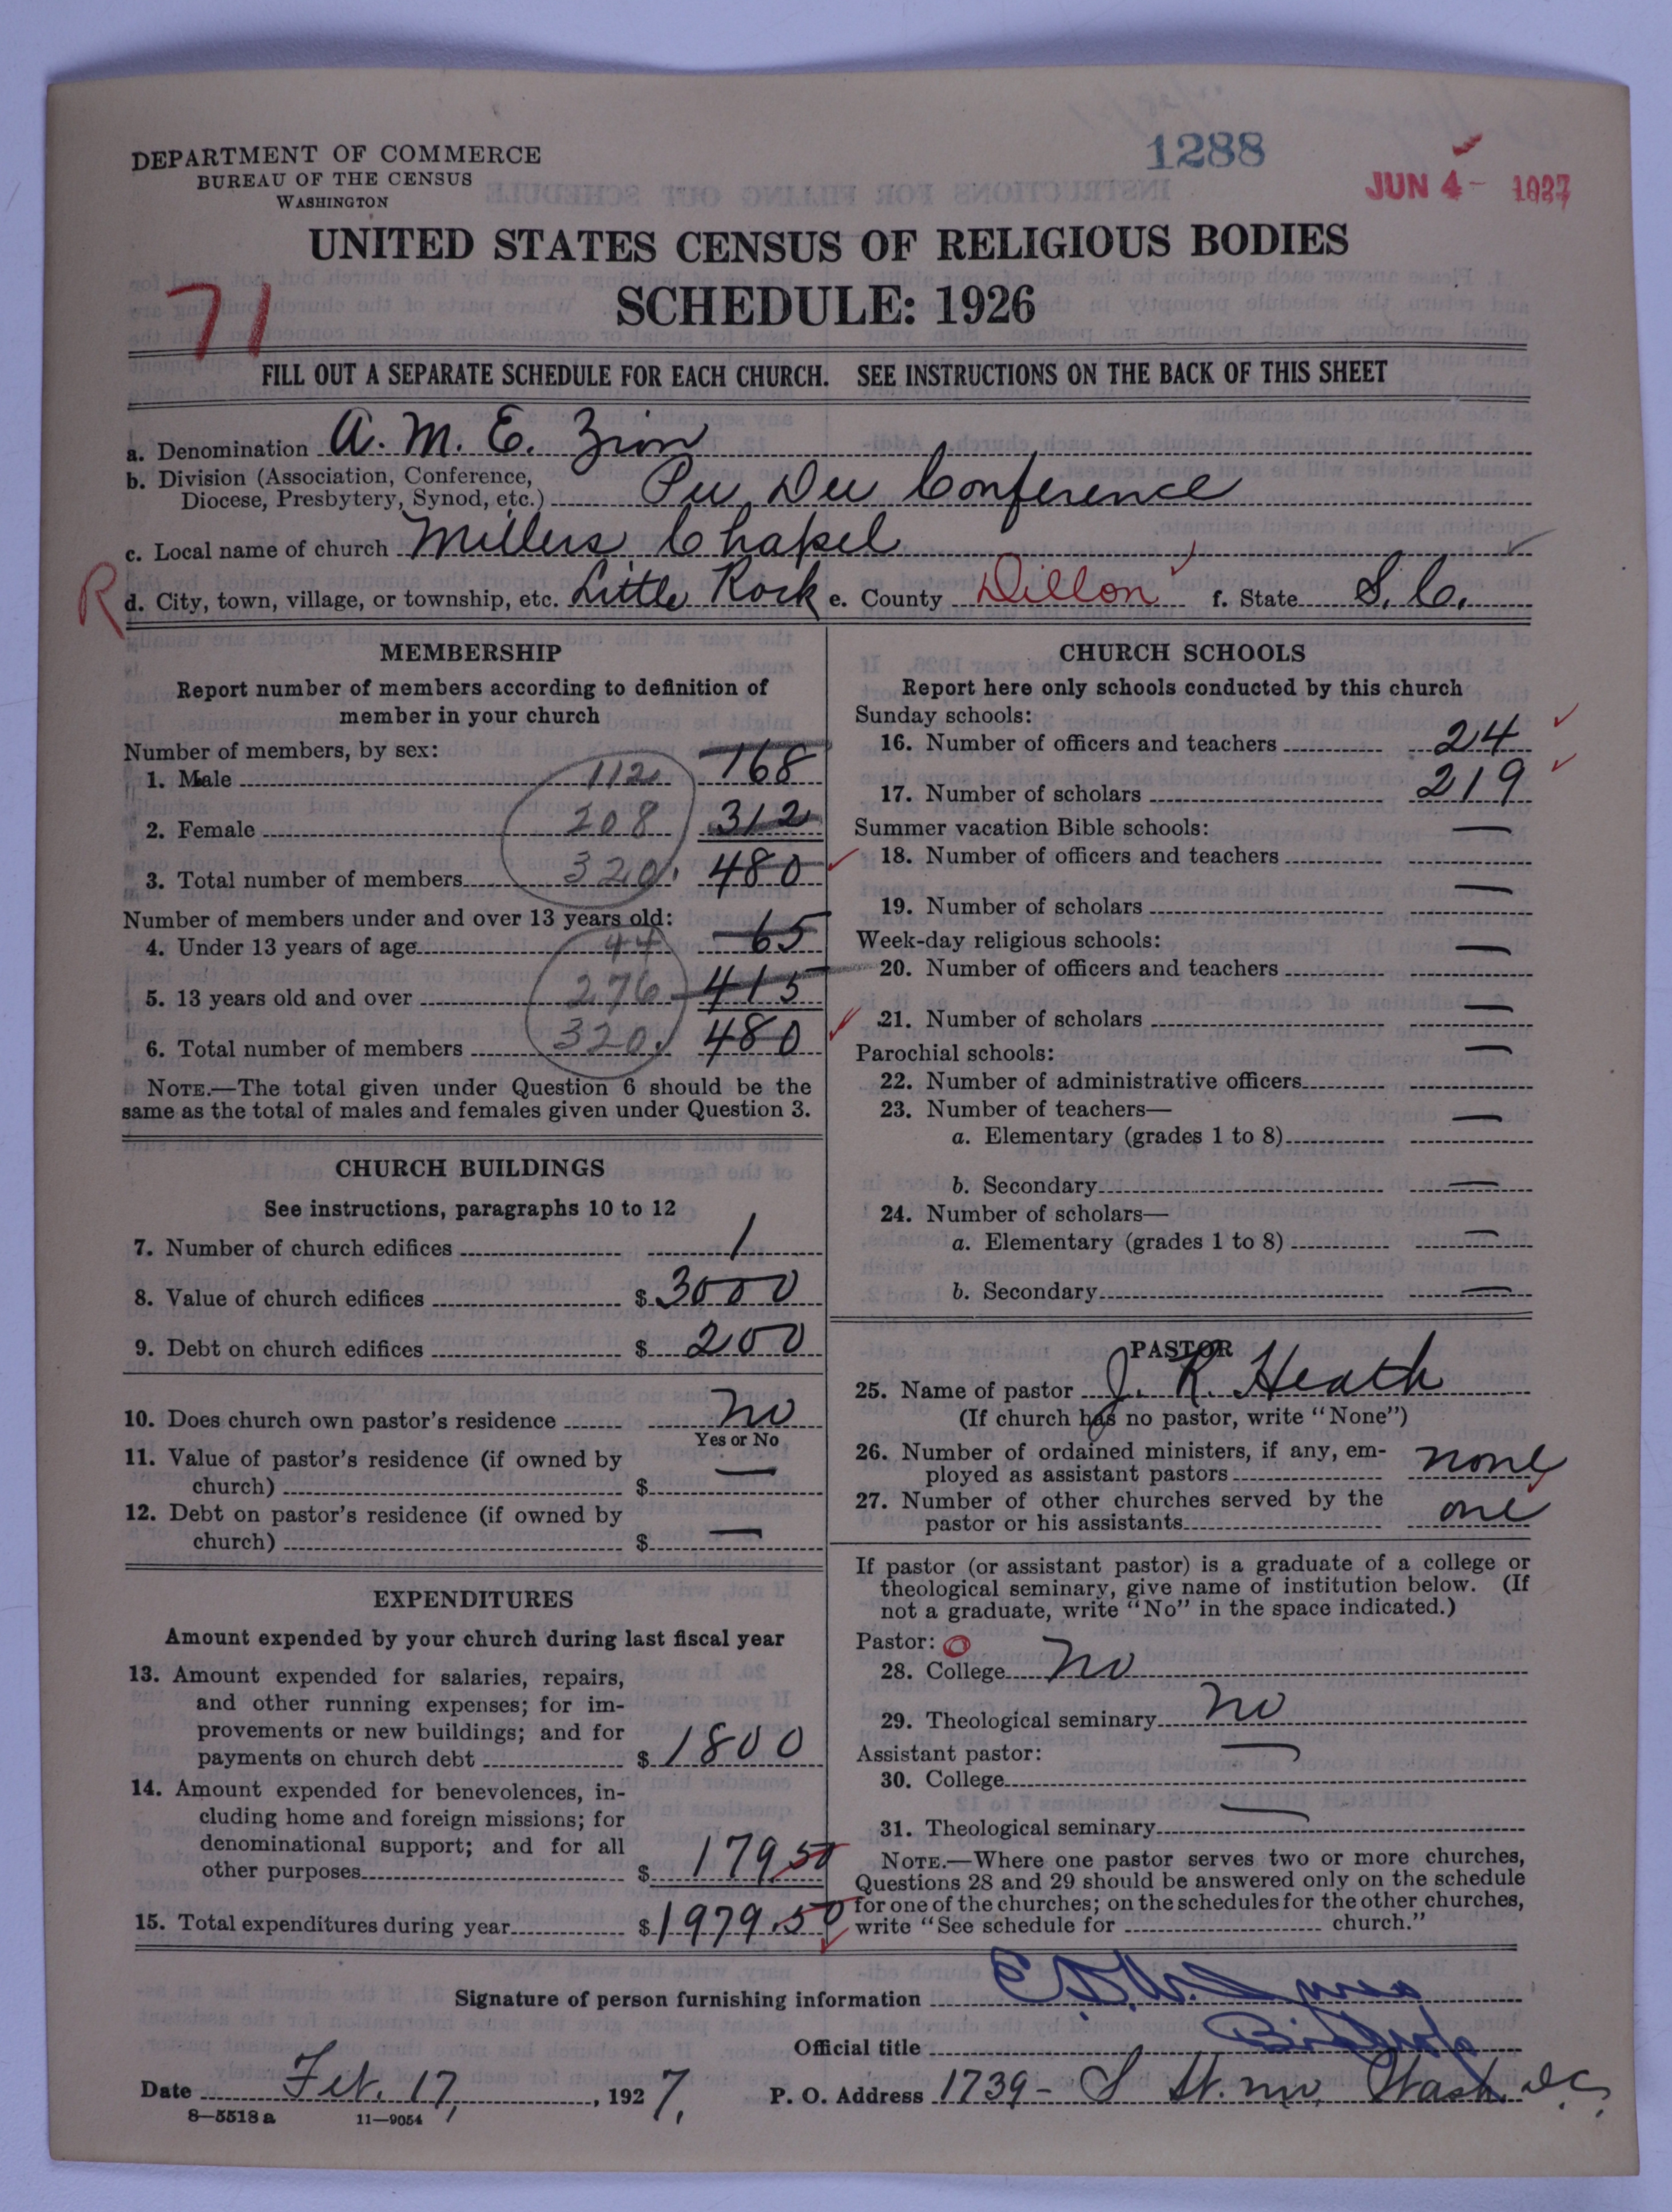 DEPARTMENT OF COMMERCE
BUREAU OF THE CENSUS
WASHINGTON
1288
JUN 4 - 1927
UNITED STATES CENSUS OF RELIGIOUS BODIES
SCHEDULE: 1926
71
FILL OUT A SEPARATE SCHEDULE FOR EACH CHURCH. SEE INSTRUCTIONS ON THE BACK OF THIS SHEET
a. Denomination A. M. E. Zion
b. Division (Association, Conference,
Diocese, Presbytery, Synod, etc.) Pee Dee Conference
c. Local name of church Millers Chapel
R
d. City, town, village, or township, etc. Little Rock e. County Dillon f. State S. C.
MEMBERSHIP
Report number of members according to definition of
member in your church
Number of members, by sex:
1. Male 112 168
2. Female 208 312
3. Total number of members 320 480
Number of members under and over 13 years old:
4. Under 13 years of age 44 65
5. 13 years old and over 276 415
6. Total number of members 320 480
NOTE.—The total given under Question 6 should be the
same as the total of males and females given under Question 3.
CHURCH BUILDINGS
See instructions, paragraphs 10 to 12
7. Number of church edifices 1
8. Value of church edifices $ 3000
9. Debt on church edifices $ 200
10. Does church own pastor's residence no
Yes or No
11. Value of pastor's residence (if owned by
church) $ —
12. Debt on pastor's residence (if owned by
church) $ —
EXPENDITURES
Amount expended by your church during last fiscal year
13. Amount expended for salaries, repairs,
and other running expenses; for im-
provements or new buildings; and for
payments on church debt $ 1800
14. Amount expended for benevolences, in-
cluding home and foreign missions; for
denominational support; and for all
other purposes $ 179.50
15. Total expenditures during year $ 1979.50
CHURCH SCHOOLS
Report here only schools conducted by this church
Sunday schools:
16. Number of officers and teachers 24
17. Number of scholars 219
Summer vacation Bible schools:
18. Number of officers and teachers —
19. Number of scholars —
Week-day religious schools:
20. Number of officers and teachers —
21. Number of scholars —
Parochial schools:
22. Number of administrative officers —
23. Number of teachers—
a. Elementary (grades 1 to 8) —
b. Secondary —
24. Number of scholars—
a. Elementary (grades 1 to 8) —
b. Secondary —
PASTOR
25. Name of pastor J. R. Heath
(If church has no pastor, write "None")
26. Number of ordained ministers, if any, em-
ployed as assistant pastors none
27. Number of other churches served by the
pastor or his assistants one
If pastor (or assistant pastor) is a graduate of a college or
theological seminary, give name of institution below. (If
not a graduate, write "No" in the space indicated.)
Pastor:
28. College no
29. Theological seminary no
Assistant pastor:
30. College —
31. Theological seminary —
NOTE.—Where one pastor serves two or more churches,
Questions 28 and 29 should be answered only on the schedule
for one of the churches; on the schedules for the other churches,
write "See schedule for church."
Signature of person furnishing information
Official title Bishop
Date Feb. 17, 1927. P. O. Address 1739 - S St. nw, Wash. D.C.
8—5518 a 11—9054